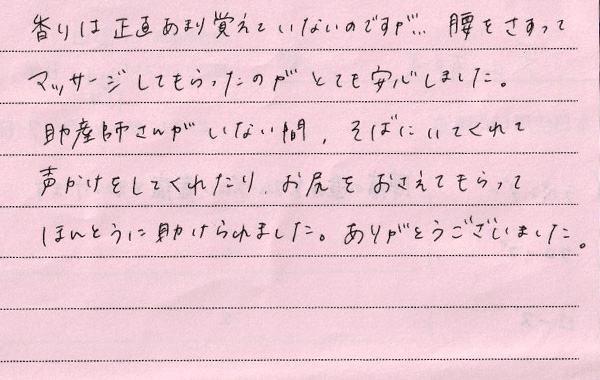 香りは正直あまり覚えていないのですが… 腰をさすって
マッサージしてもらったのがとても安心しました。
助産師さんがいない間、そばにいてくれて
声かけをしてくれたり、お尻をおさえてもらって
ほんとうに助けられました。ありがとうございました。